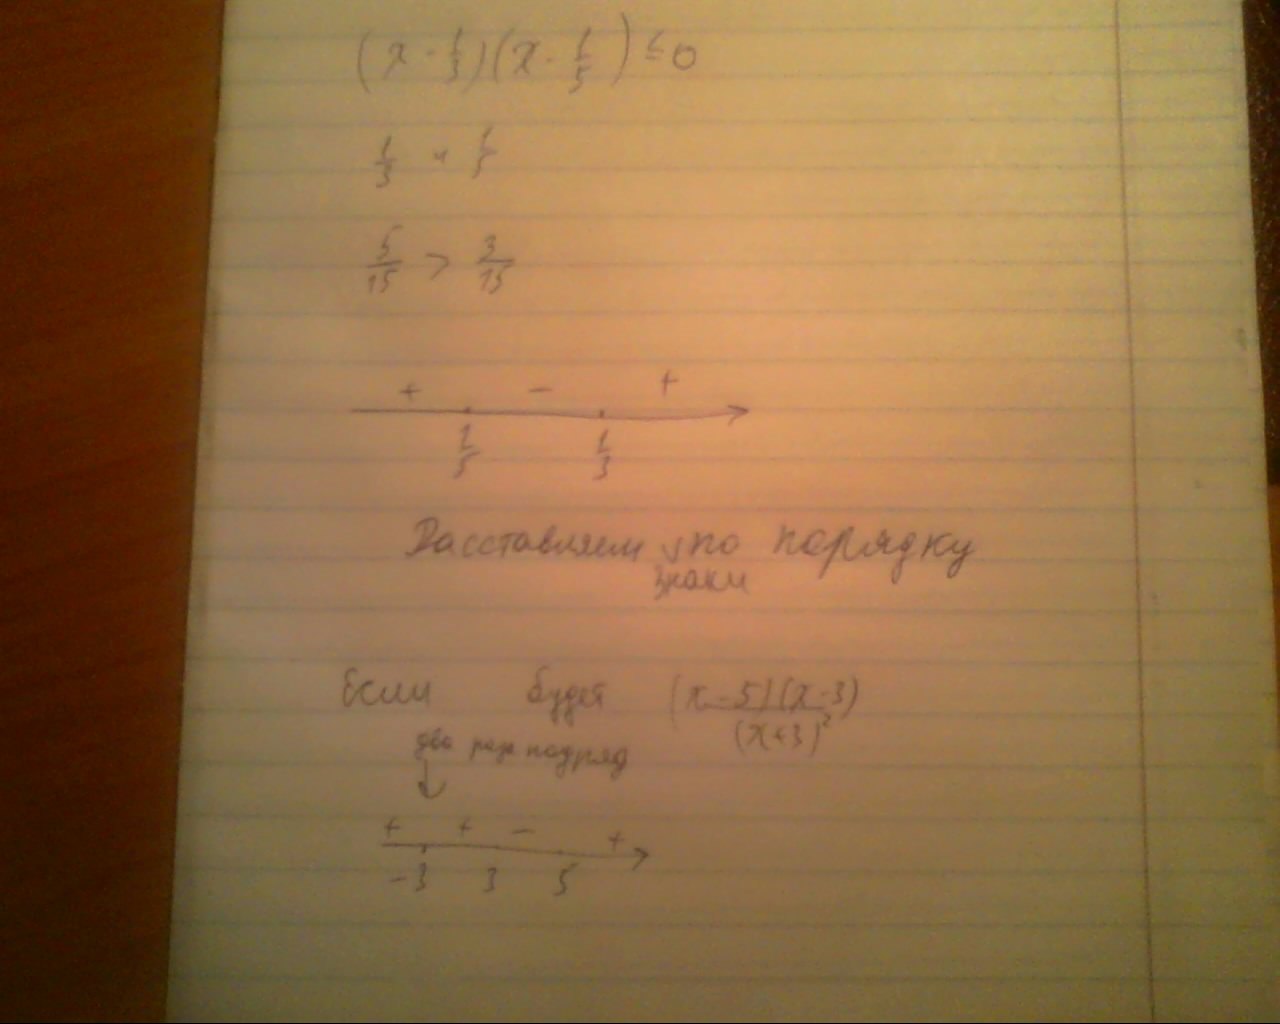 (x - 1/3)(x - 1/5) ≤ 0
1/3 и 1/5
5/15 > 3/15
+ - +
1/5 1/3
Расставляем знаки по порядку
Если будет (x-5)(x-3)/(x+3)²
два раза подряд
+ + - +
-3 3 5